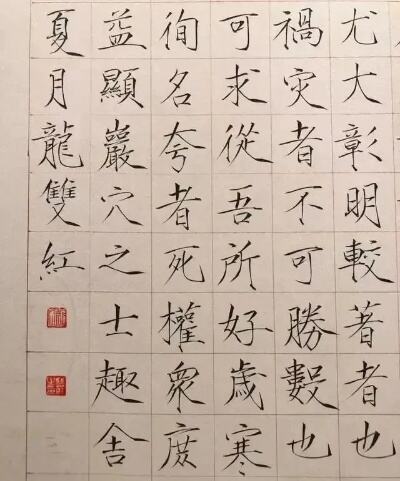 尤大彰明較著者也
禍灾者不可勝數也
可求從吾所好歲寒
徇名夸者死權衆庶
益顯巖穴之士趣舍
夏月龍雙紅